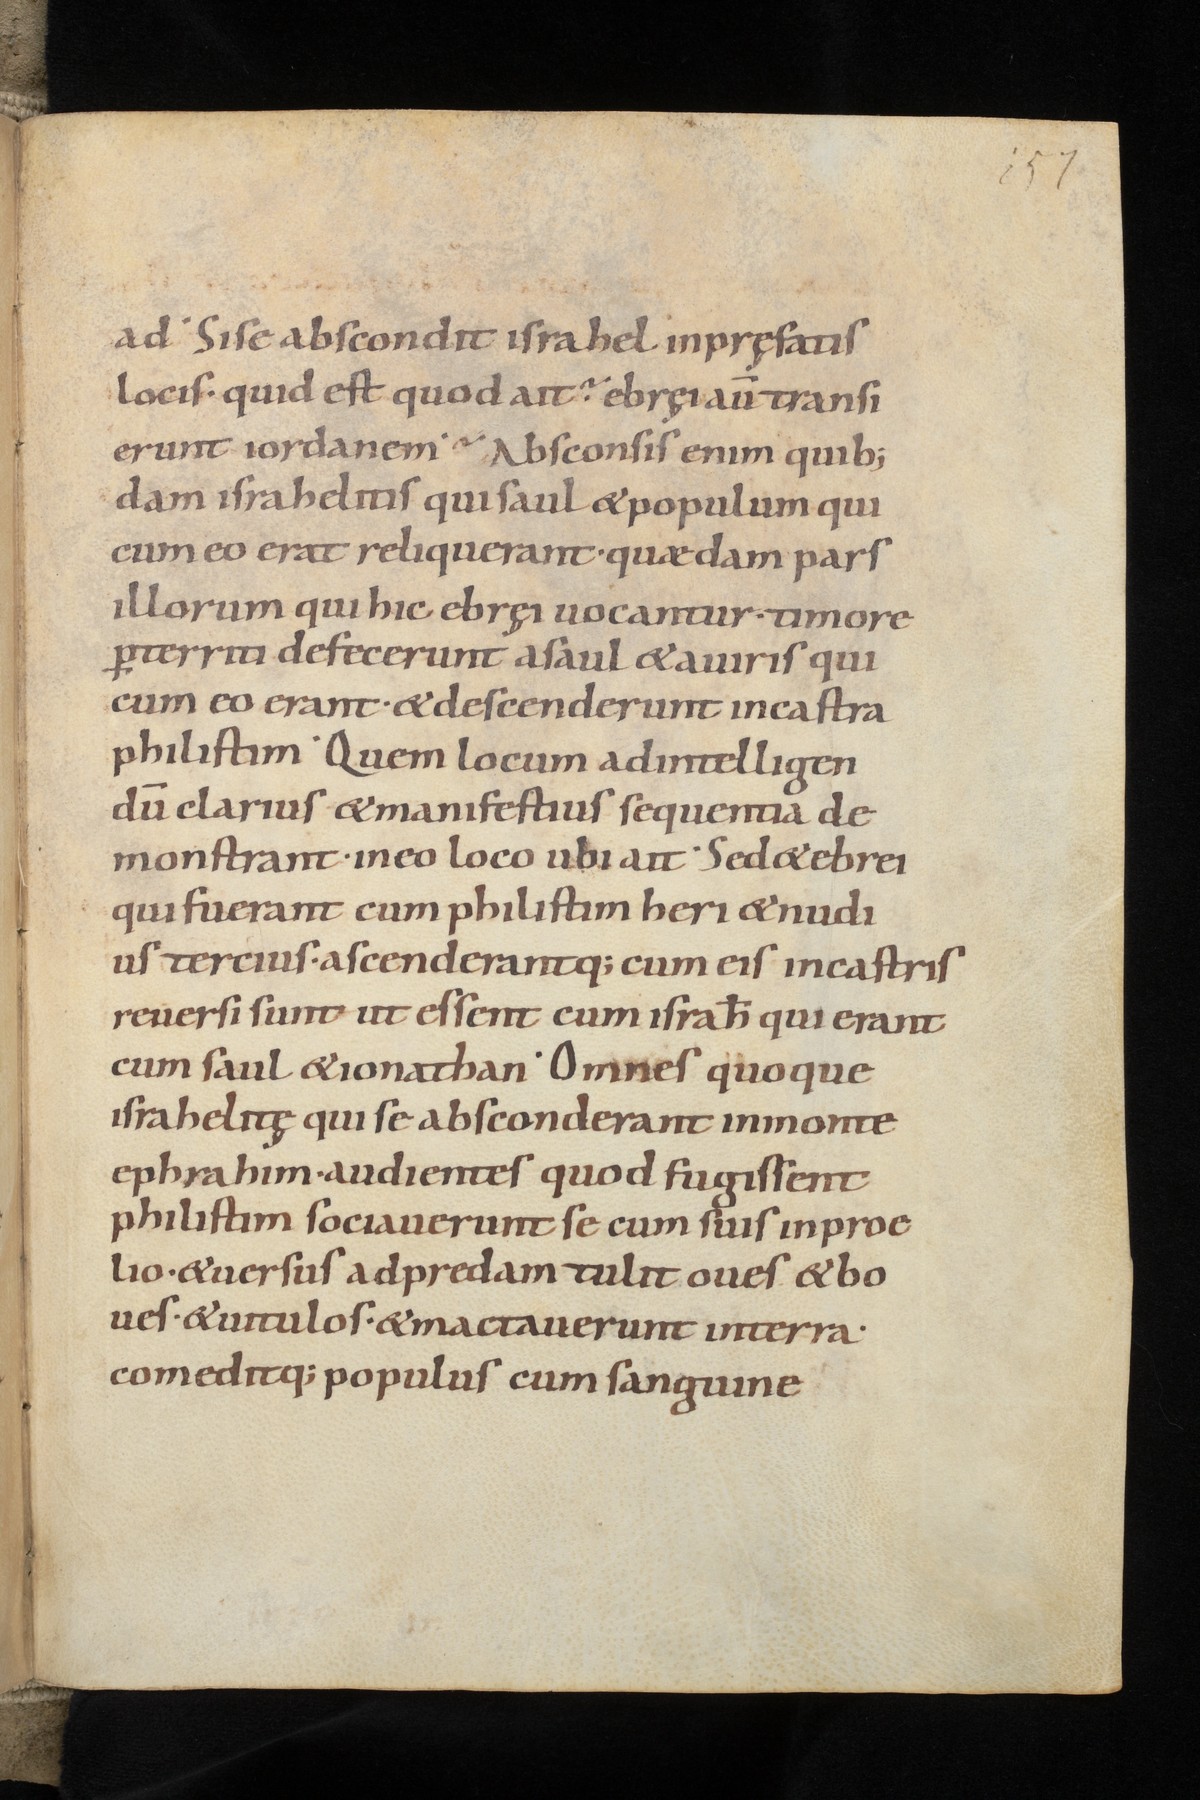 157
ad· Si se abscondit israhel in pręfatis
locis· quid est quod ait? ebręi aū transi
erunt iordanem? Absconsis enim quib;
dam israhelitis qui saul & populum qui
cum eo erat reliquerant· quædam pars
illorum qui hic ebręi uocantur· timore
p̱territi defecerunt a saul & a uiris qui
cum eo erant· & descenderunt in castra
philistim· Quem locum ad intelligen
dū clarius & manifestius sequentia de
monstrant· in eo loco ubi ait· Sed & ebrei
qui fuerant cum philistim heri & nudi
us tercius· ascenderantq; cum eis in castris
reuersi sunt ut essent cum israħ qui erant
cum saul & ionathan· Omnes quoque
israhelitę qui se absconderant in monte
ephrahim· audientes quod fugissent
philistim sociauerunt se cum suis in proe
lio· & uersus ad predam tulit oues & bo
ues· & uitulos· & mactauerunt in terra·
comeditq; populus cum sanguine